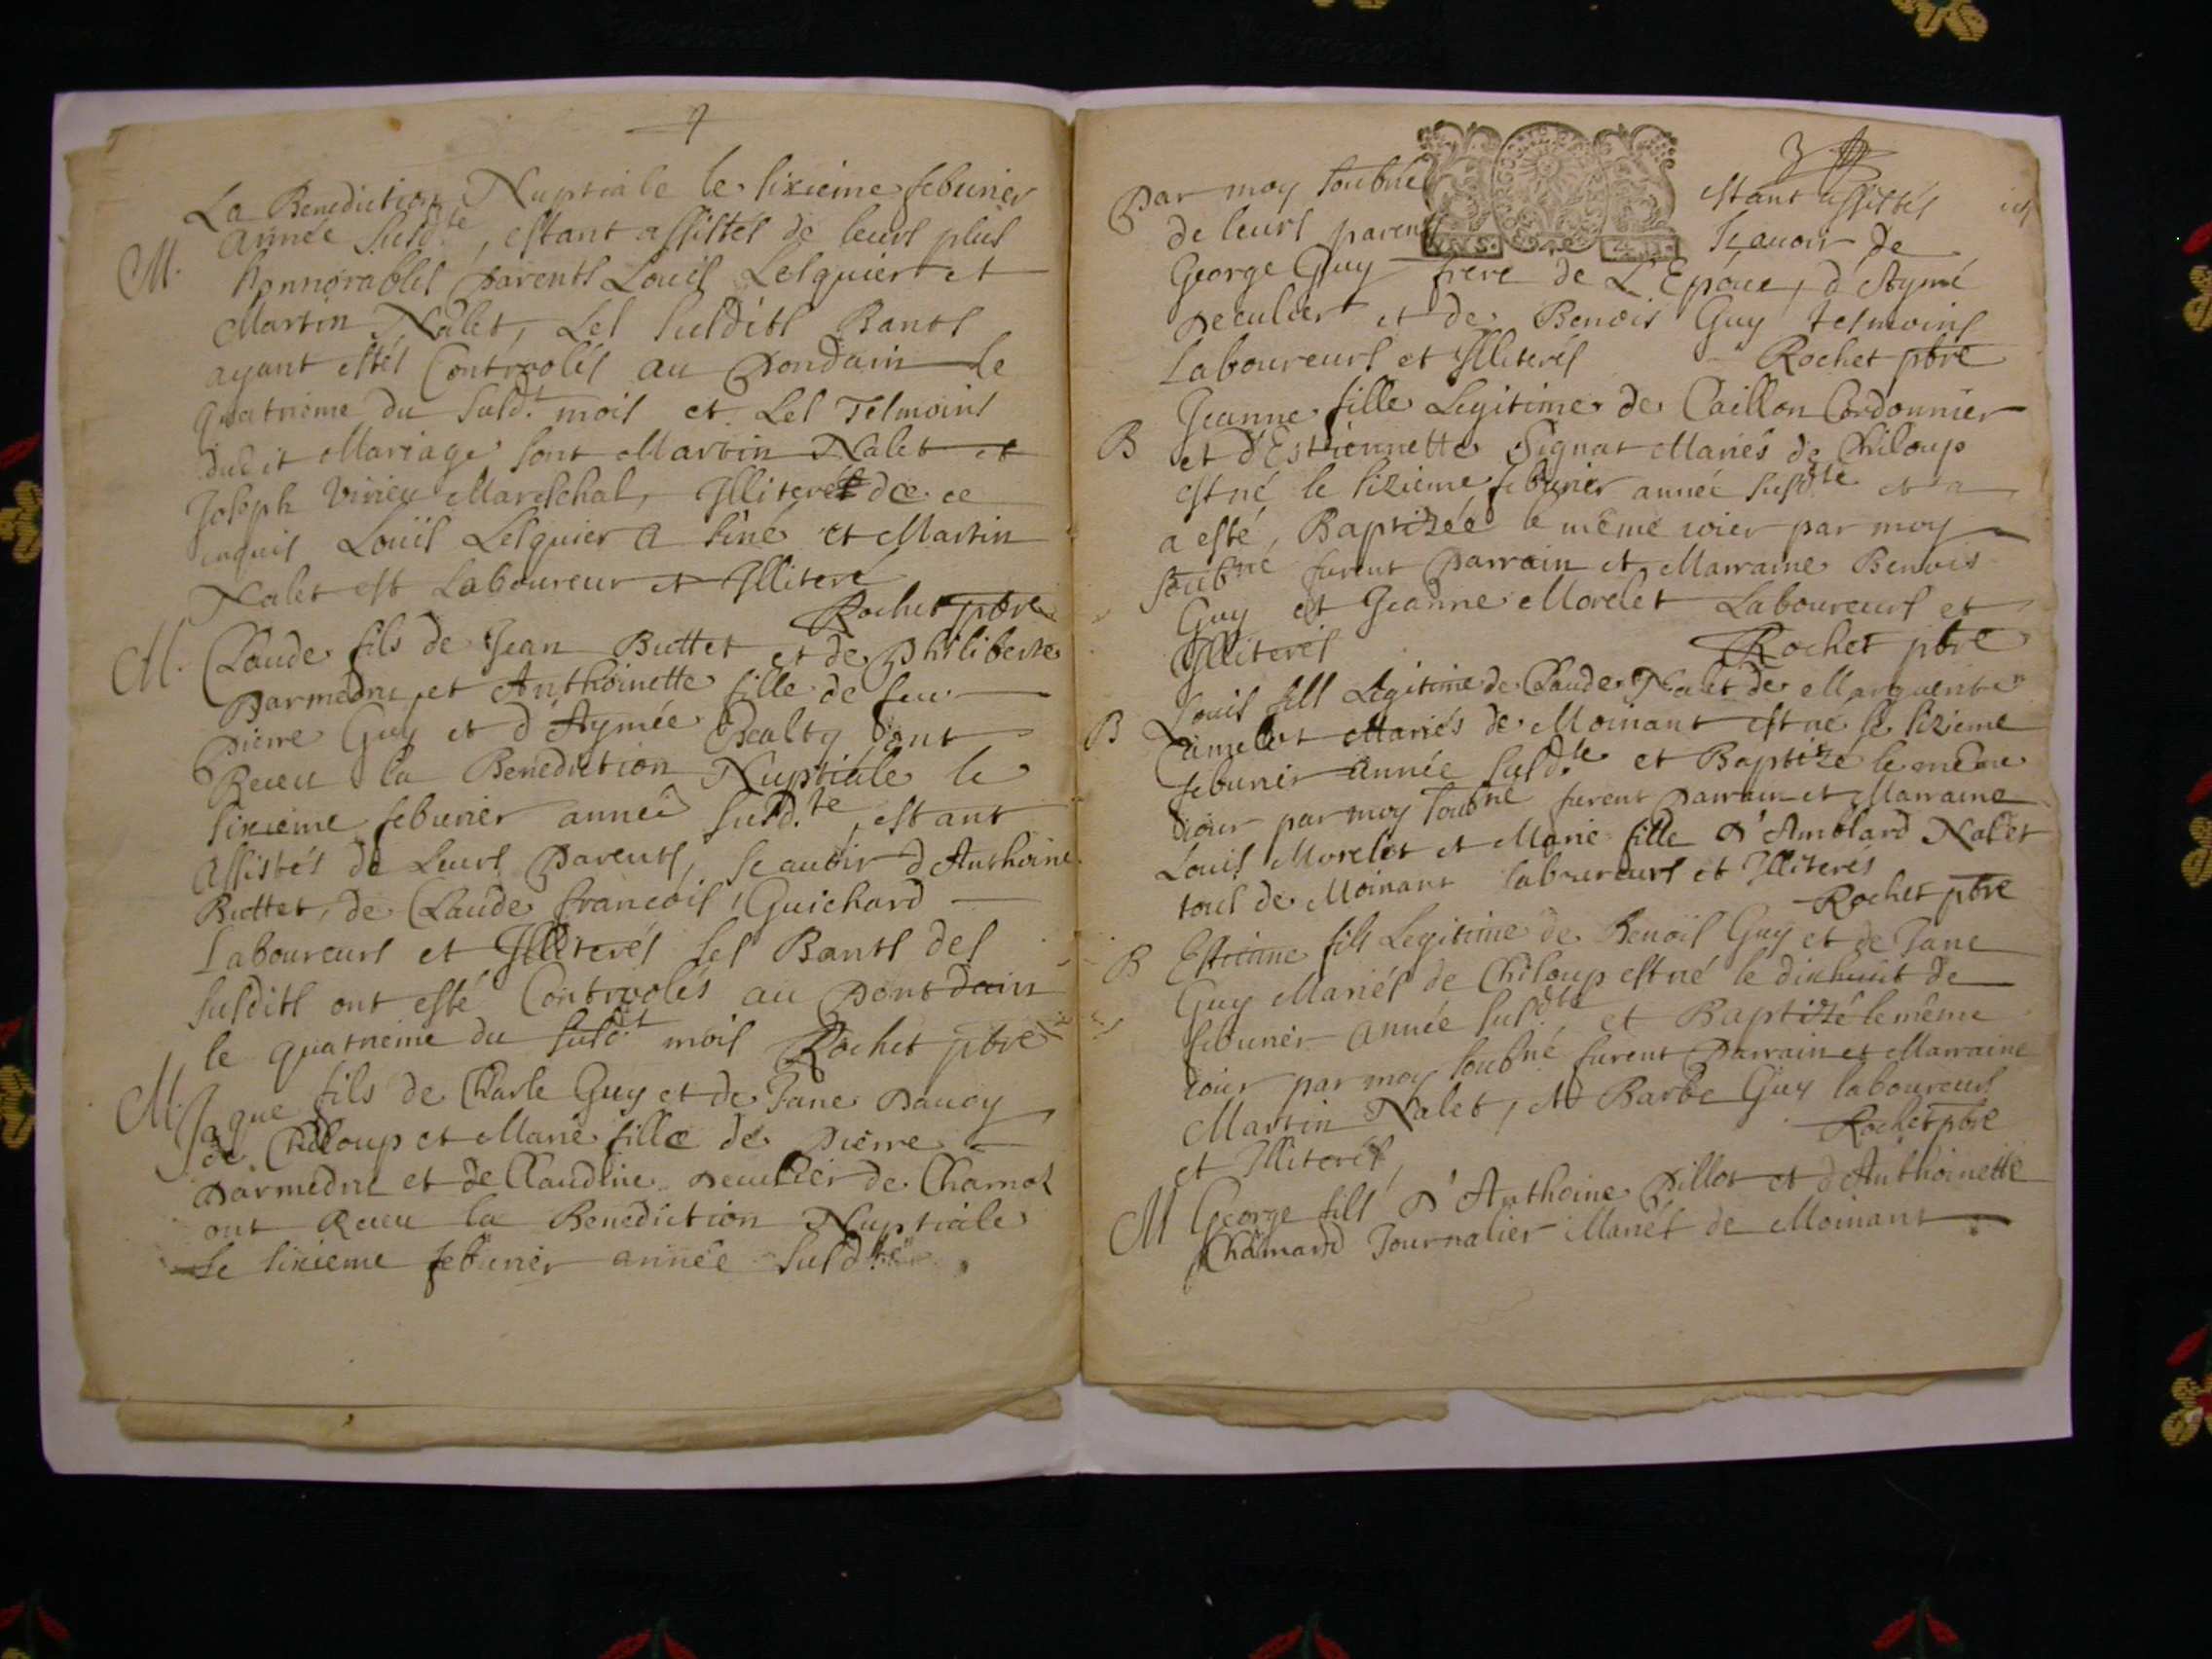 La Benediction Nuptiale le sixieme feburier
M. année susd.te, estant assistes de leurs plus
honnorables parents Louis Lesquier et
Martin Nalet, Les susdits Bants
ayant estés Controolés au Pondain le
quatrieme du susd.t mois et Les Tesmoins
dudit Mariage sont Martin Nalet et
Joseph Vivieu Mareschal, Illiterés de ce
enquis Louïs Lesquier a siné et Martin
Nalet est Laboureur et Illiteré
Rochet pbre
M. Claude fils de Jean Buttet et de Philiberte
Darmedru et Anthoinette fille de feu
Pierre Guy et d'Aymée Bealty ont
Receu la Benediction Nuptiale le
sixieme feburier année susd.te, estant
assistés de Leurs Parents, scauoir d'Anthoine
Buttet, de Claude francois Guichard
Laboureurs et Illiterés les Bants des
susdits ont esté Controolés au Pontdain
le quatrieme du susd.t mois Rochet pbre
M. Jaque fils de Charle Guy et de Jane Daucy
de Chiloup et Marie fille de Pierre
Darmedru et de Claudine Deculier de Charnos
ont Receu la Benediction Nuptiale
Le sixieme feburier année susd.te
3
Par moy soubné estant assistés
de leurs parents scauoir de
George Guy frere de L'Epouce, d'Aymé
Deculier et de Benois Guy tesmoins
Laboureurs et Illiterés Rochet pbre
Jeanne fille Legitime de Caillon Cordonnier
B et d'Estiennette Signat Mariés de Chiloup
est né le sizieme feburier année susd.te et a
a esté, Baptizée le même ioier par moy
soubné furent Parrain et Marraine Benois
Guy et Jeanne Morelet Laboureurs et
Illiterés Rochet pbre
B Louis fils Legitime de Claude Nalet de Marguerite
Camelet Mariés de Moinant est né le sizieme
feburier année susd.te et Baptizé le même
iour par moy soubné furent Parrain et Marraine
Louis Morelet et Marie fille d'Amblard Nalet
tous de Moinant laboureurs et Illiterés
Rochet pbre
B Estienne fils Legitime de Benois Guy et de Jane
Guy Mariés de Chiloup est né le dixhuit de
feburier année susd.te et Baptizé le même
iour par moy soubné furent Parrain et Marraine
Martin Nalet, et Barbe Guy laboureurs
et Illiterés, Rochet pbre
M George fils d'Anthoine Pillot et d'Anthoinette
Chamard Journalier Mariés de Moinant